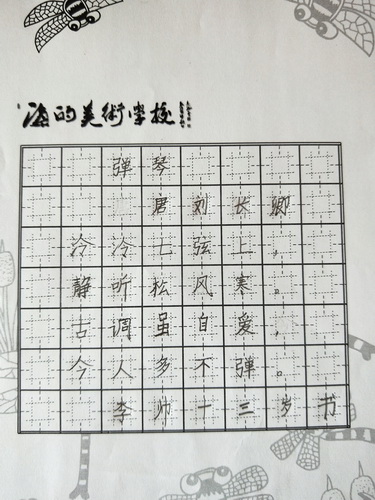 海的美術学校
弹琴
唐 刘长卿
泠泠七弦上，
静听松风寒。
古调虽自爱，
今人多不弹。
李帅十三岁书